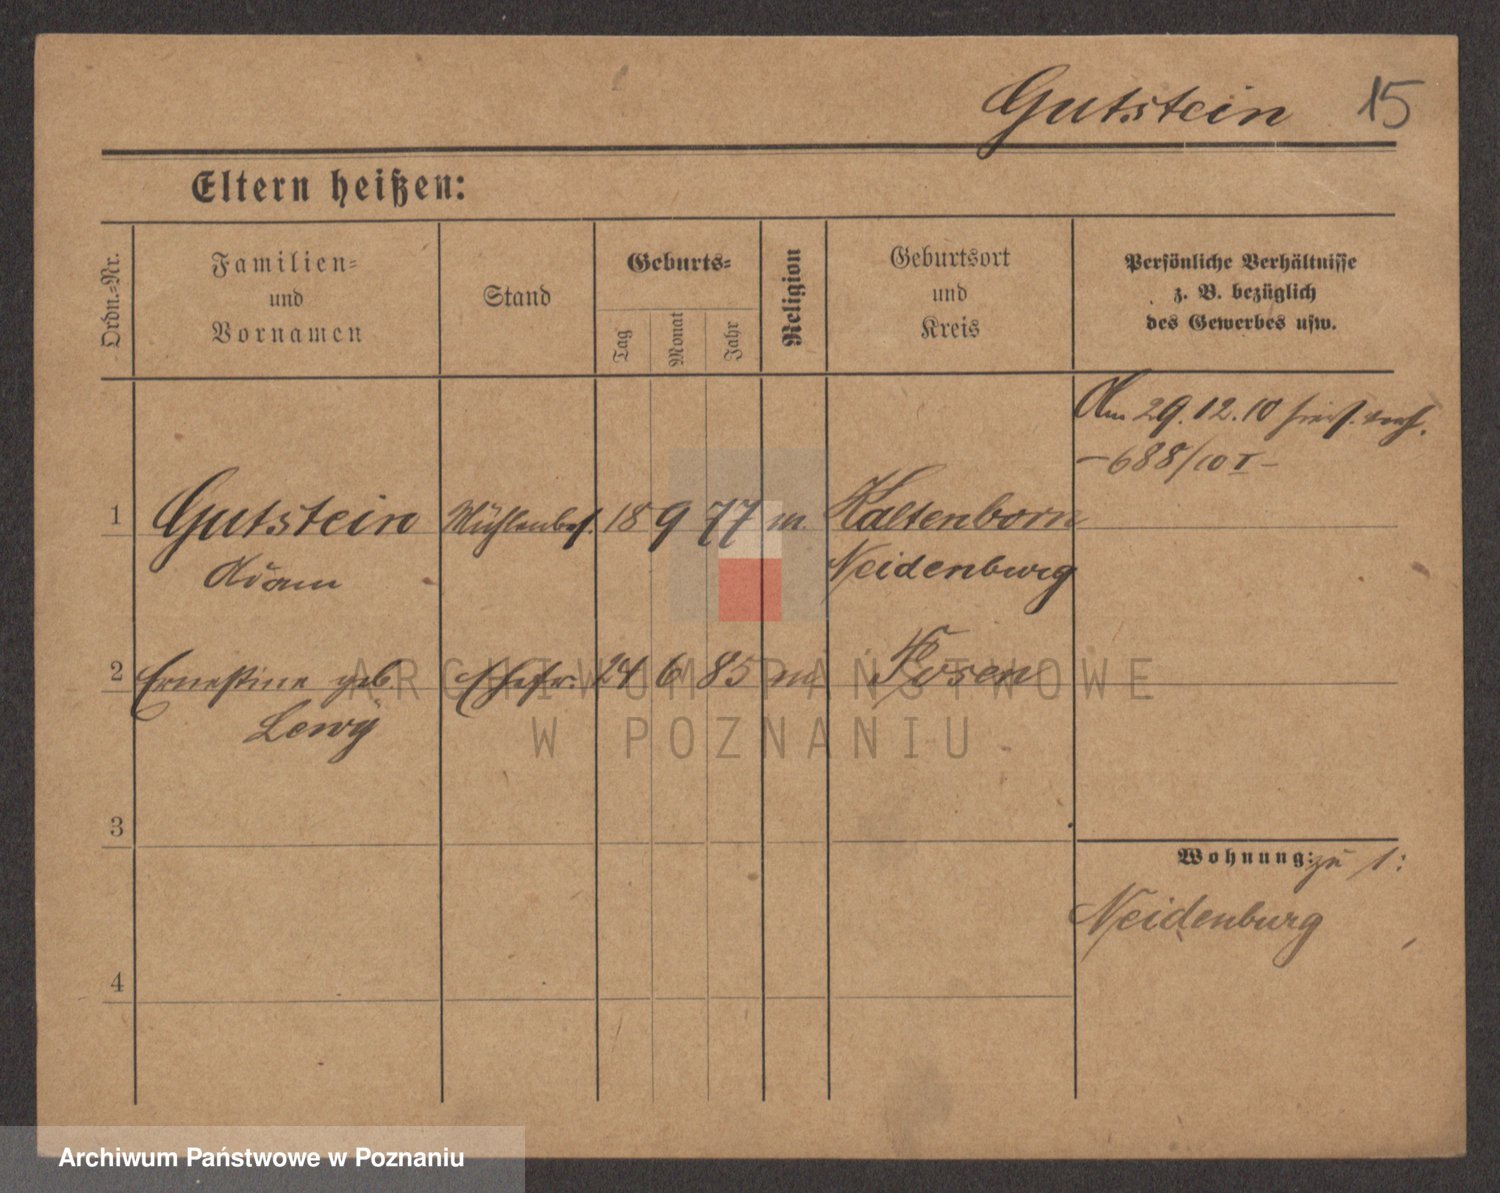 Gutstein 15
Eltern heißen:
Ordn.=Nr.
Familien=
und
Vornamen
Stand
Geburts=
Tag
Monat
Jahr
Religion
Geburtsort
und
Kreis
Persönliche Verhältnisse
z. B. bezüglich
des Gewerbes usw.
Am 29.12.10
-688/10 I-
1 Gutstein Mühlenbes. 18 9 77 m Kaltenborn
Adam Neidenburg
2 Ernestine geb. Ehefr. 24 6 85 m Posen
Lewy
3
Wohnung: zu 1:
Neidenburg
4
ARCHIWUM PAŃSTWOWE
W POZNANIU
Archiwum Państwowe w Poznaniu